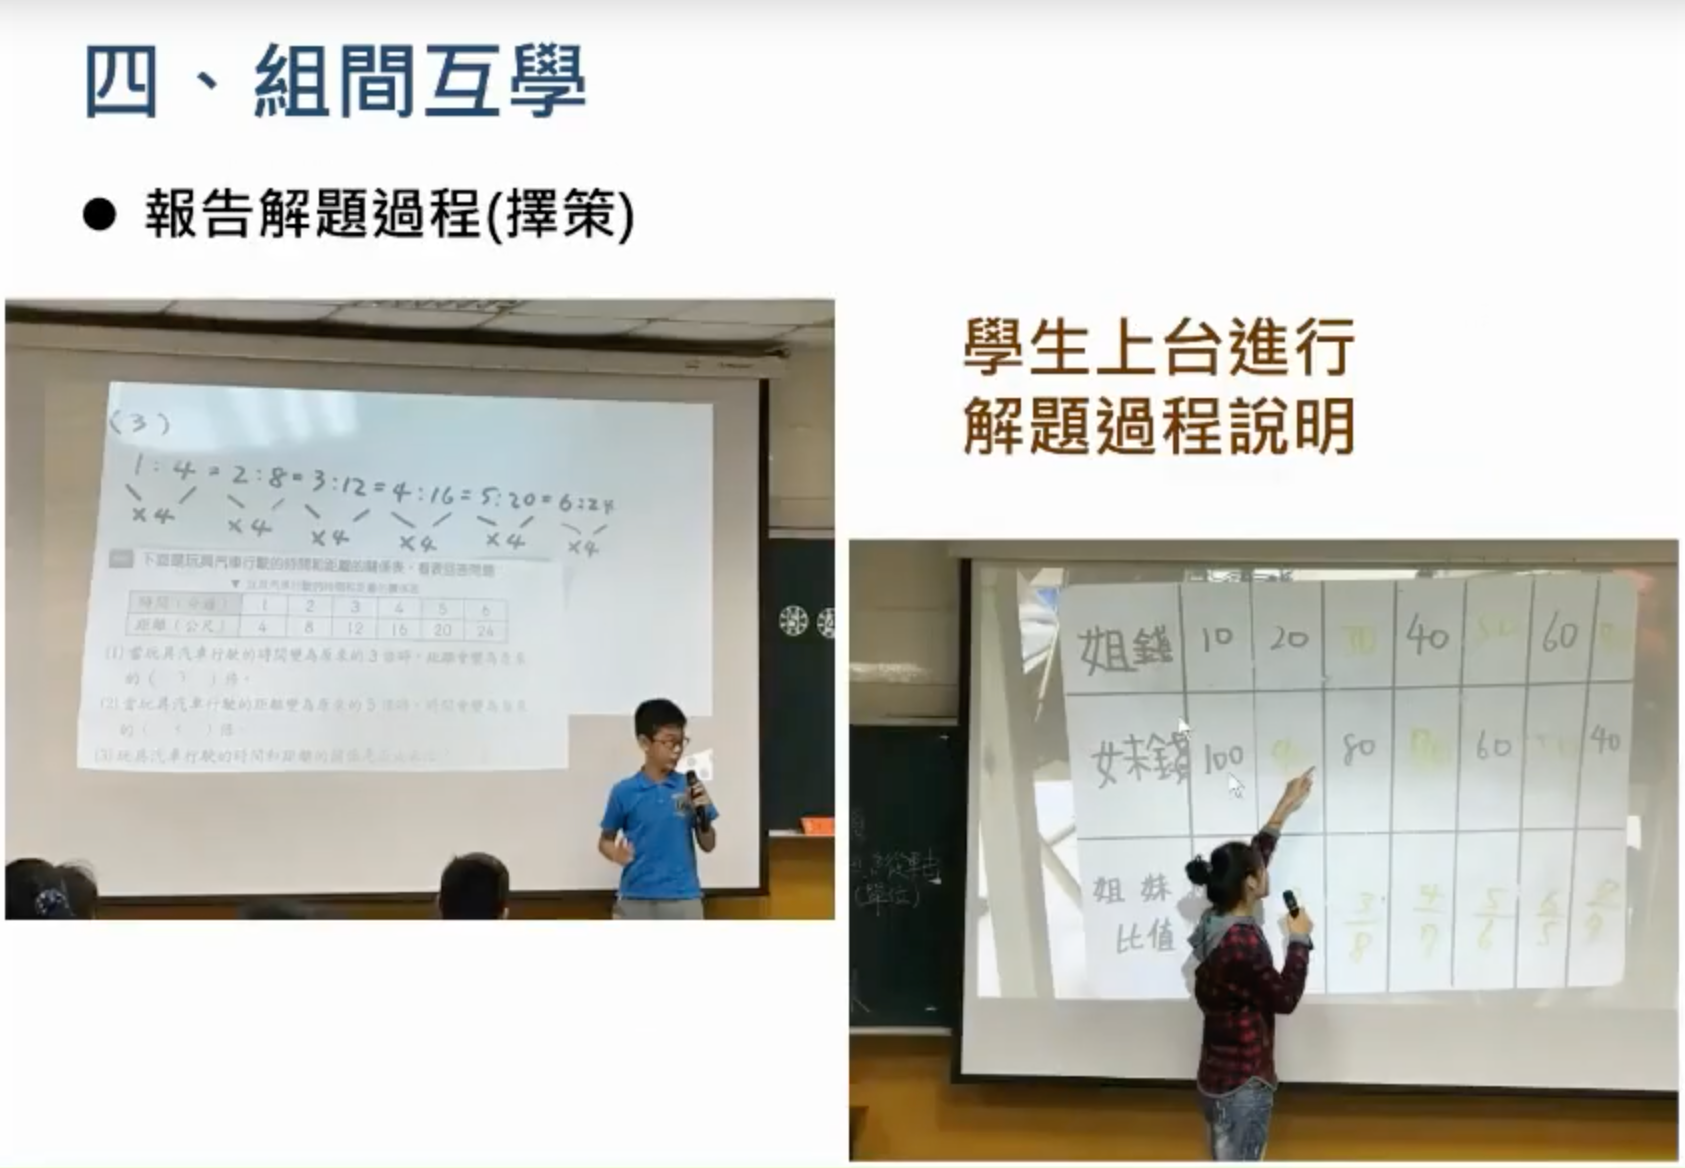 四、組間互學
● 報告解題過程(擇策)
學生上台進行
解題過程說明
(3)
1:4=2:8=3:12=4:16=5:20=6:24
×4 ×4 ×4 ×4 ×4 ×4
下面是玩具汽車行駛的時間和距離的關係表,看表回答問題
時間(分鐘) 1 2 3 4 5 6
距離(公尺) 4 8 12 16 20 24
(1)當玩具汽車行駛的時間變為原來的3倍時,距離會變為原來
的( )倍。
(2)當玩具汽車行駛的距離變為原來的5倍時,時間會變為原來
的( )倍
(3)玩具汽車行駛的時間和距離的關係
姐錢 10 20 40 60
妹錢 100 80 60 40
姐 妹
比值 3/8 4/7 5/6 6/5